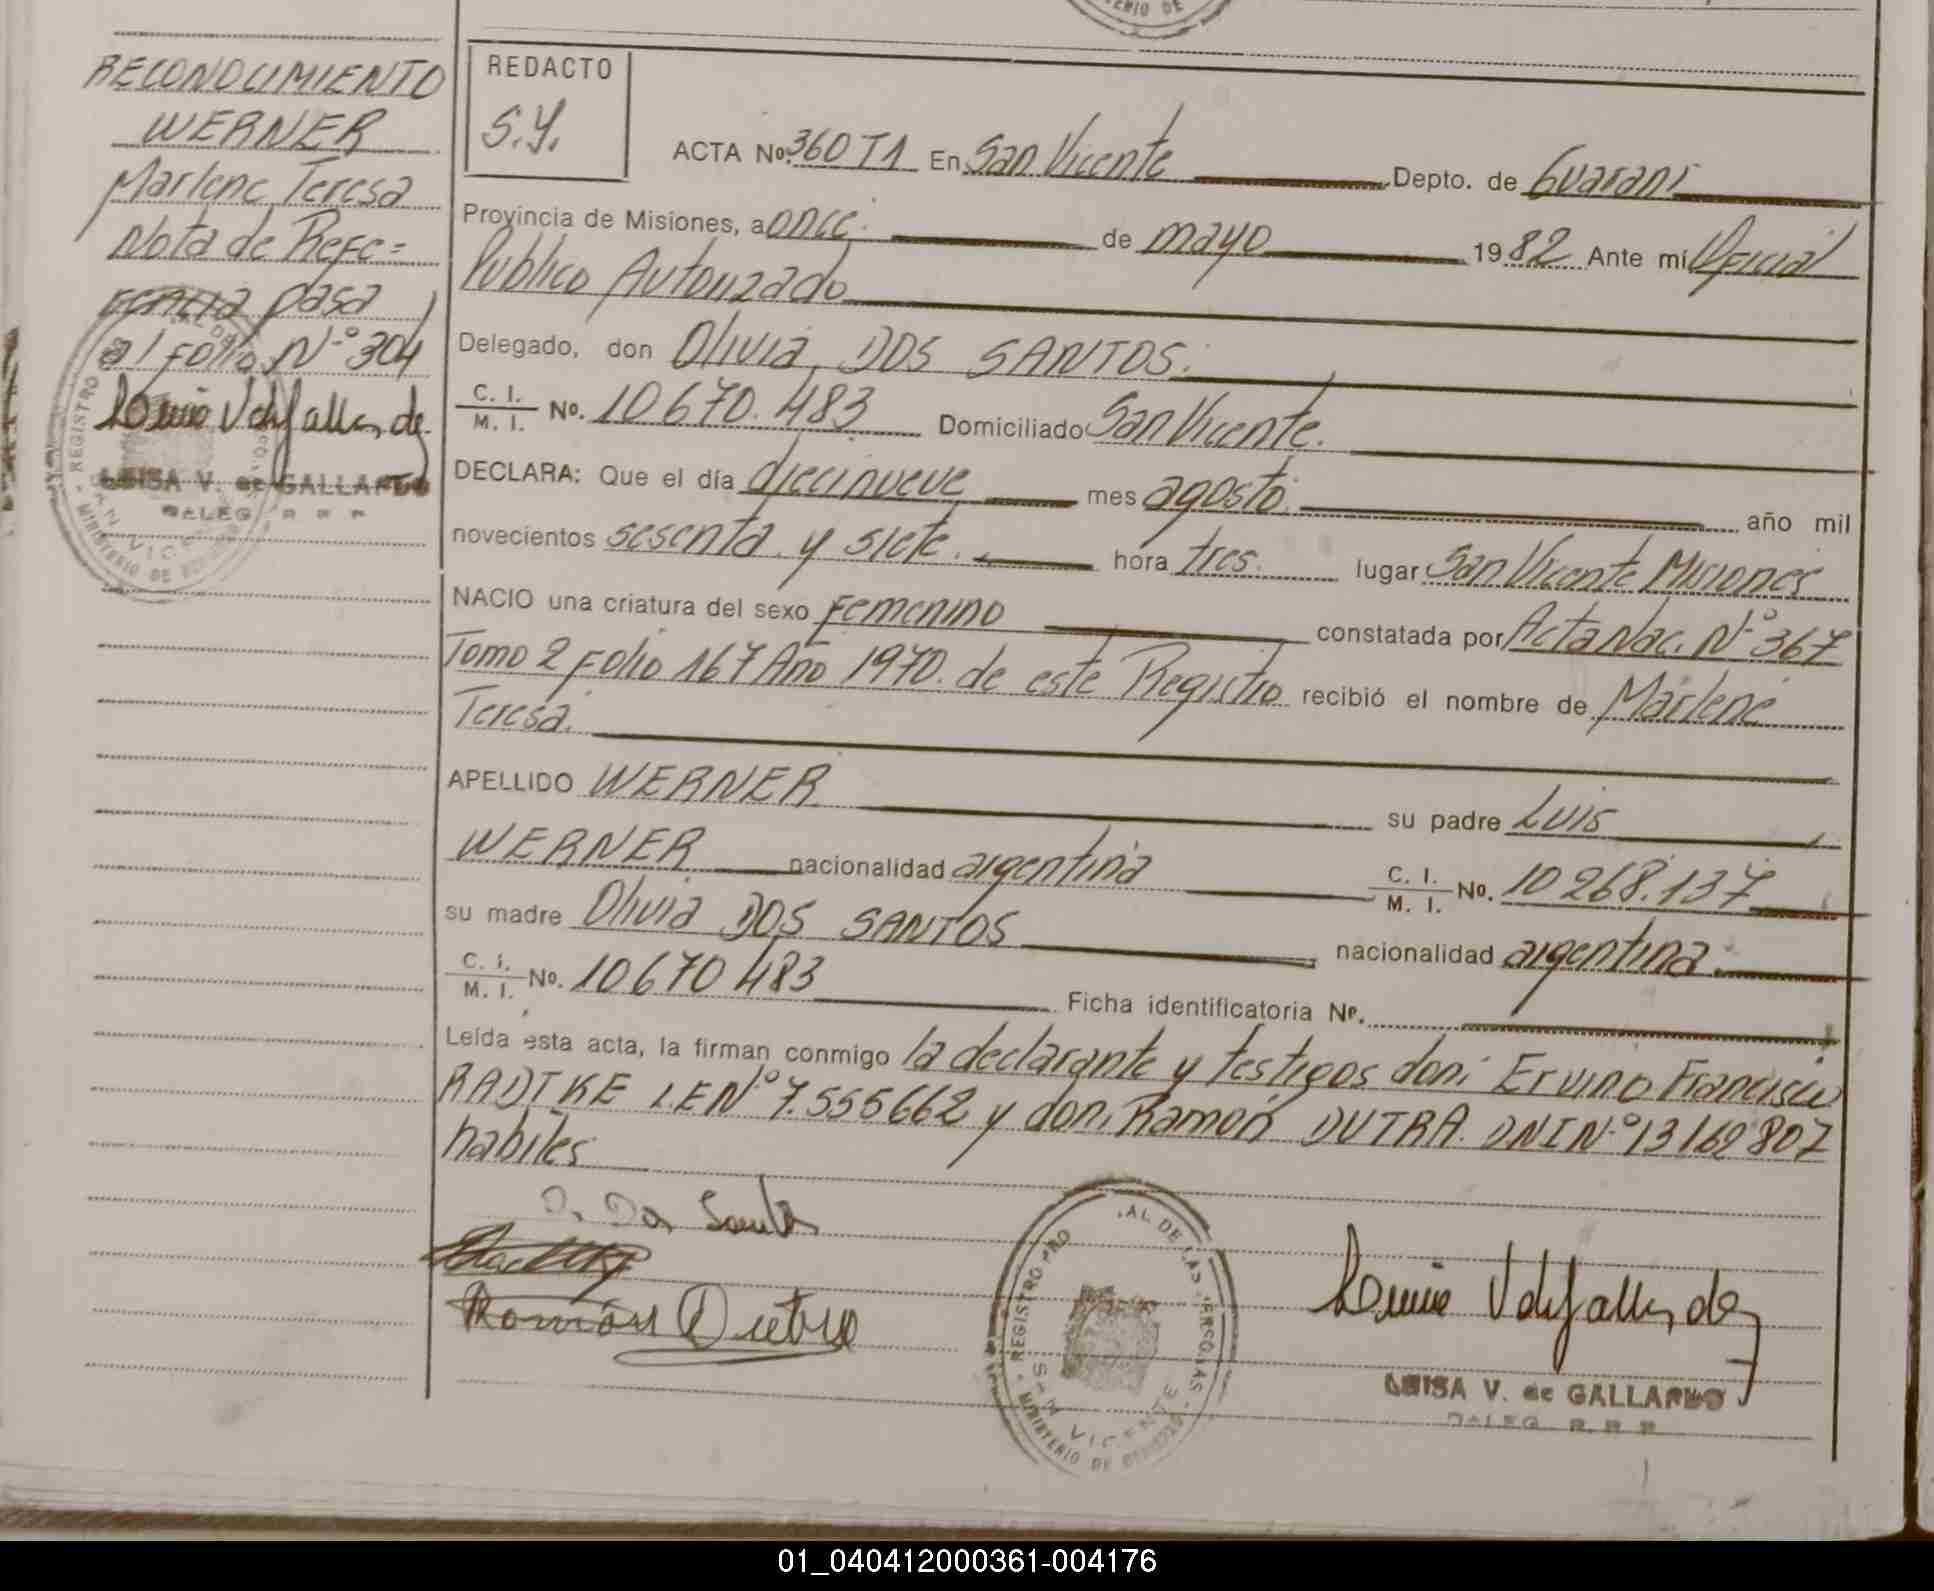 RECONOCIMIENTO
WERNER
Marlene Teresa
Nota de Refe=
rencia pasa
al Folio N-º 304
LUISA V. de GALLARDO
DALEG. R. R. P.
REGISTRO
SAN VICENTE
MINISTERIO DE
REDACTO
S.Y.
ACTA Nº. 360 T1 En San Vicente Depto. de Guaraní
Provincia de Misiones, a once. de mayo 1982 Ante mí Oficial
Publico Autorizado
Delegado, don Olivia DOS SANTOS.
C. I.
M. I. Nº. 10670.483 Domiciliado San Vicente.
DECLARA: Que el día diecinueve mes agosto. año mil
novecientos sesenta y siete. hora tres. lugar San Vicente Misiones
NACIO una criatura del sexo Femenino constatada por Acta Nac. N-º 367
Tomo 2 Folio 167 Año 1970. de este Registro recibió el nombre de Marlene
Teresa.
APELLIDO WERNER su padre Luis
WERNER nacionalidad argentina C. I.
M. I. Nº. 10268.137
su madre Olivia DOS SANTOS nacionalidad argentina.
C. I.
M. I. Nº. 10670483 Ficha identificatoria Nº.
Leída esta acta, la firman conmigo la declarante y testigos don: Ervino Francisco
RADTKE L.E Nº 7.555662 y don: Ramón DUTRA. DNI N-º 13162807
habiles
O. Dos Santos
Ramón Dutra
REGISTRO PRO AL DE LAS PERSONAS
SAN VICENTE
MINISTERIO DE GOBIERNO
LUISA V. de GALLARDO
DALEG. R. R. P.
01_040412000361-004176